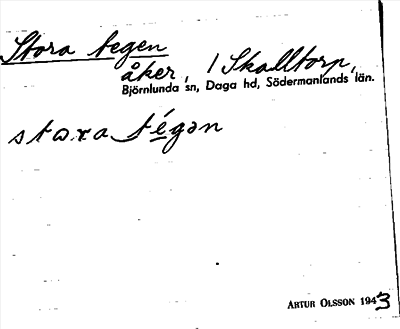 Stora tegen
åker, 1 Skalltorp,
Björnlunda sn, Daga hd, Södermanlands län.
stora tégən
ARTUR OLSSON 1943